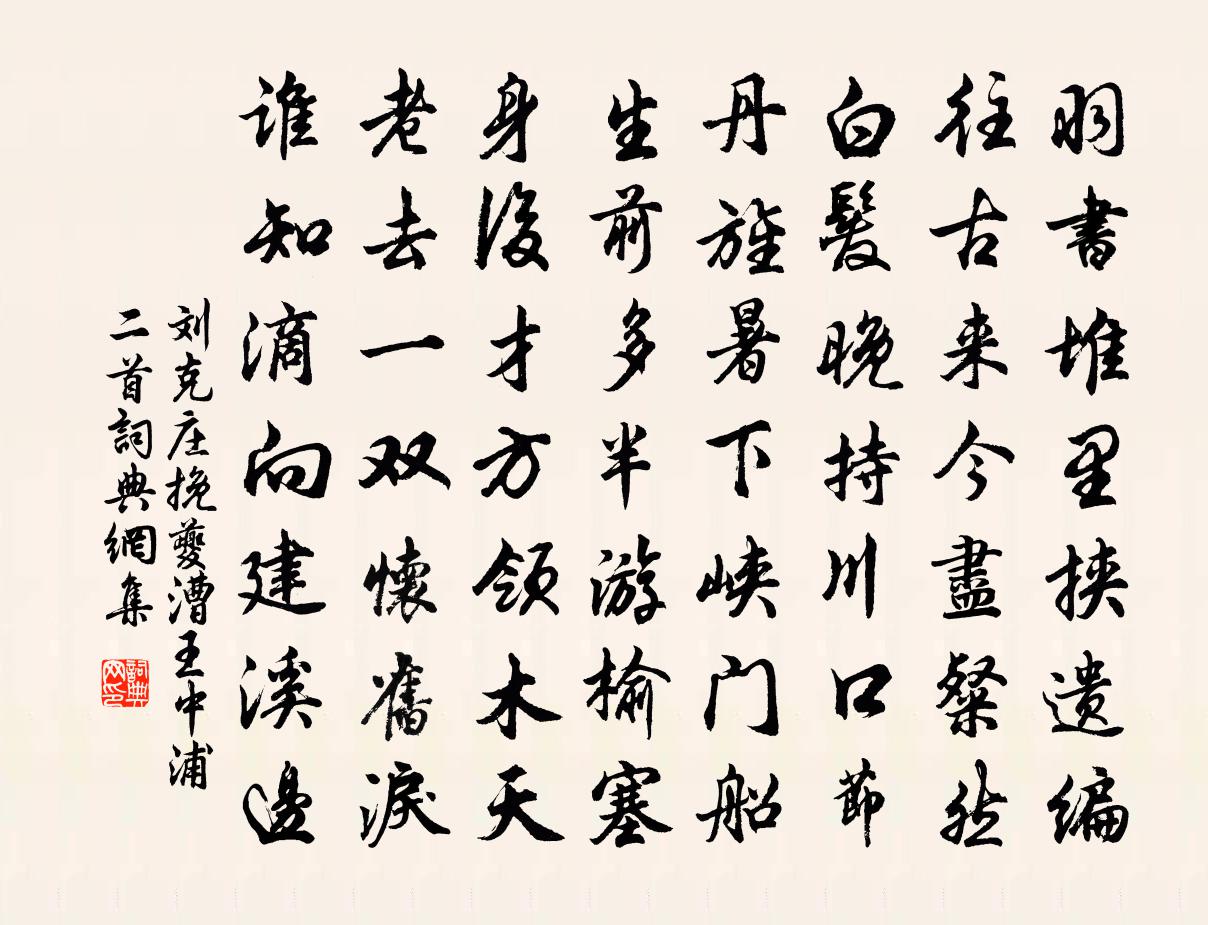 羽書堆里挟遗编
往古来今盡粲然
白髮晚持川口節
丹旌暑下峡门船
生前多半游榆塞
身後才方领木天
老去一双懷舊淚
谁知滴向建溪邊
刘克庄挽夔漕王中浦
二首詞典網集
詞典网印